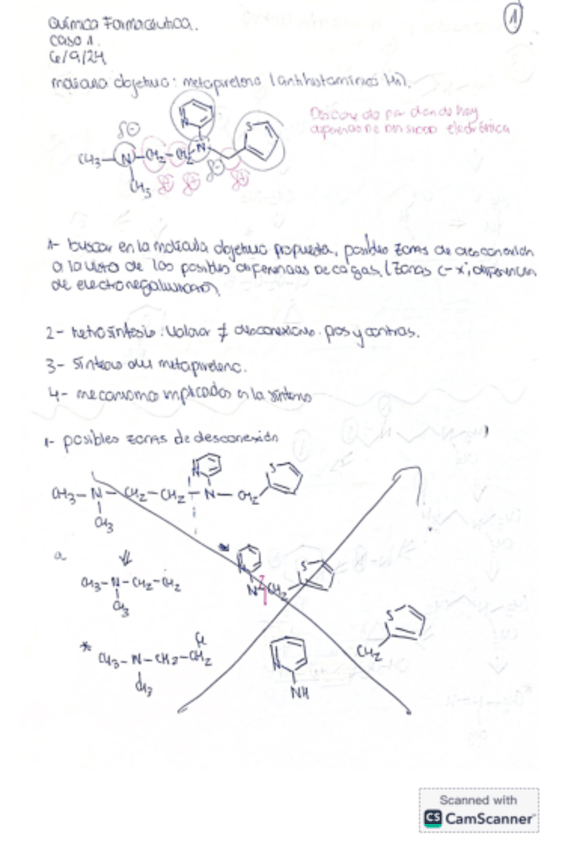 1
Química Farmacéutica.
Caso 1.
6/9/24
molécula objetivo: metapireleno (antihistamínico H1).
S
N
N
δ⊖
CH3 - N - CH2 - CH2
CH3
δ⊖
δ⊕ δ⊕ δ⊕
1- buscar en la molécula objetivo propuesta, posibles zonas de desconexión
a la vista de las posibles diferencias de cargas. (zonas C-X; diferencia
de electronegatividad).
2- retrosíntesis: valorar ≠ desconexiones. pros y contras.
3- síntesis del metapireleno.
4- mecanismos implicados en la síntesis
1- posibles zonas de desconexión
N S
CH3 - N - CH2 - CH2 - N - CH2
CH3
a
*
CH3 - N - CH2 - CH2
CH3
N S
N CH2
*
CH3 - N - CH2 - CH2
CH3
N
NH
S
CH2
Scanned with
CS CamScanner